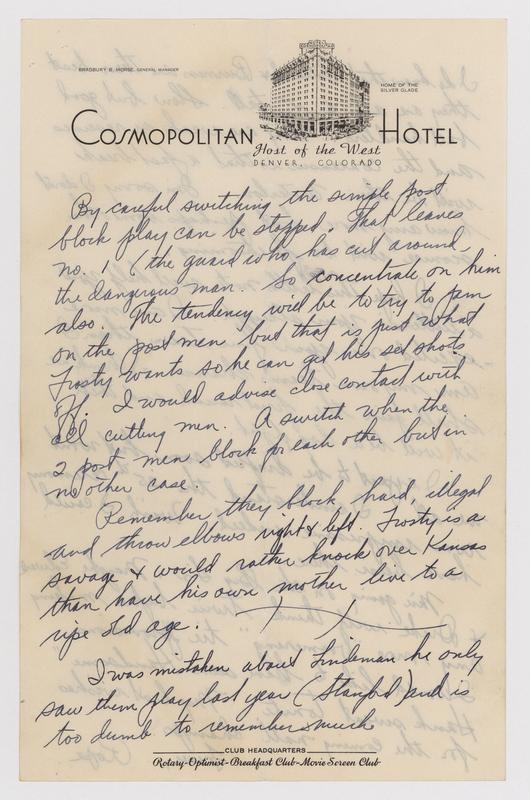 BRADBURY F. MORSE, GENERAL MANAGER
HOME OF THE
SILVER GLADE
COSMOPOLITAN HOTEL
Host of the West
DENVER, COLORADO
By careful switching the simple post
block play can be stopped. That leaves
no. 1 (the guard who has cut around
the dangerous man. So concentrate on him
also. The tendency will be to try to jam
on the post men but that is just what
Frosty wants so he can get his set shots
off. I would advise close contact with
all cutting men. A switch when the
2 post men block for each other but in
no other case.
Remember they block hard, illegal
and throw elbows right & left. Frosty is a
savage & would rather knock over Kansas
than have his own mother live to a
ripe old age.
I was mistaken about Lindeman he only
saw them play last year (Stanford) and is
too dumb to remember much
CLUB HEADQUARTERS
Rotary-Optimist-Breakfast Club-Movie Screen Club